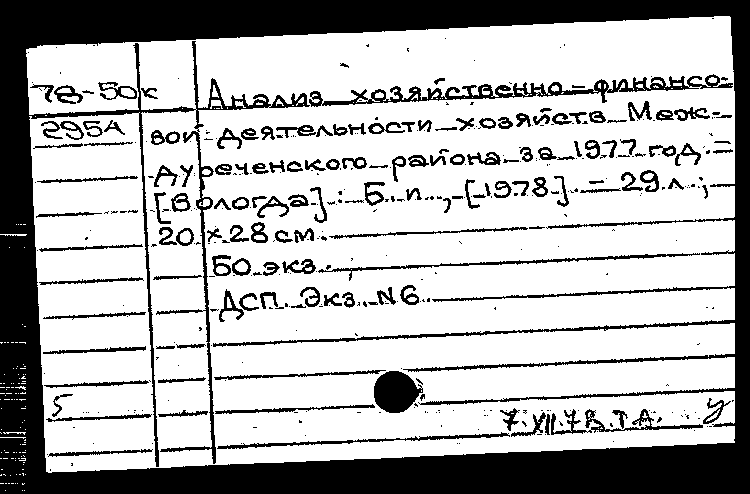 78-50к Анализ хозяйственно-финансо-
295А вой деятельности хозяйств Меж-
дуреченского района за 1977 год. -
[Вологда] : Б. и., [1978]. - 29 л.;
20 × 28 см.
50 экз.
ДСП. Экз. N6
5
7.XII.78. Т А. у